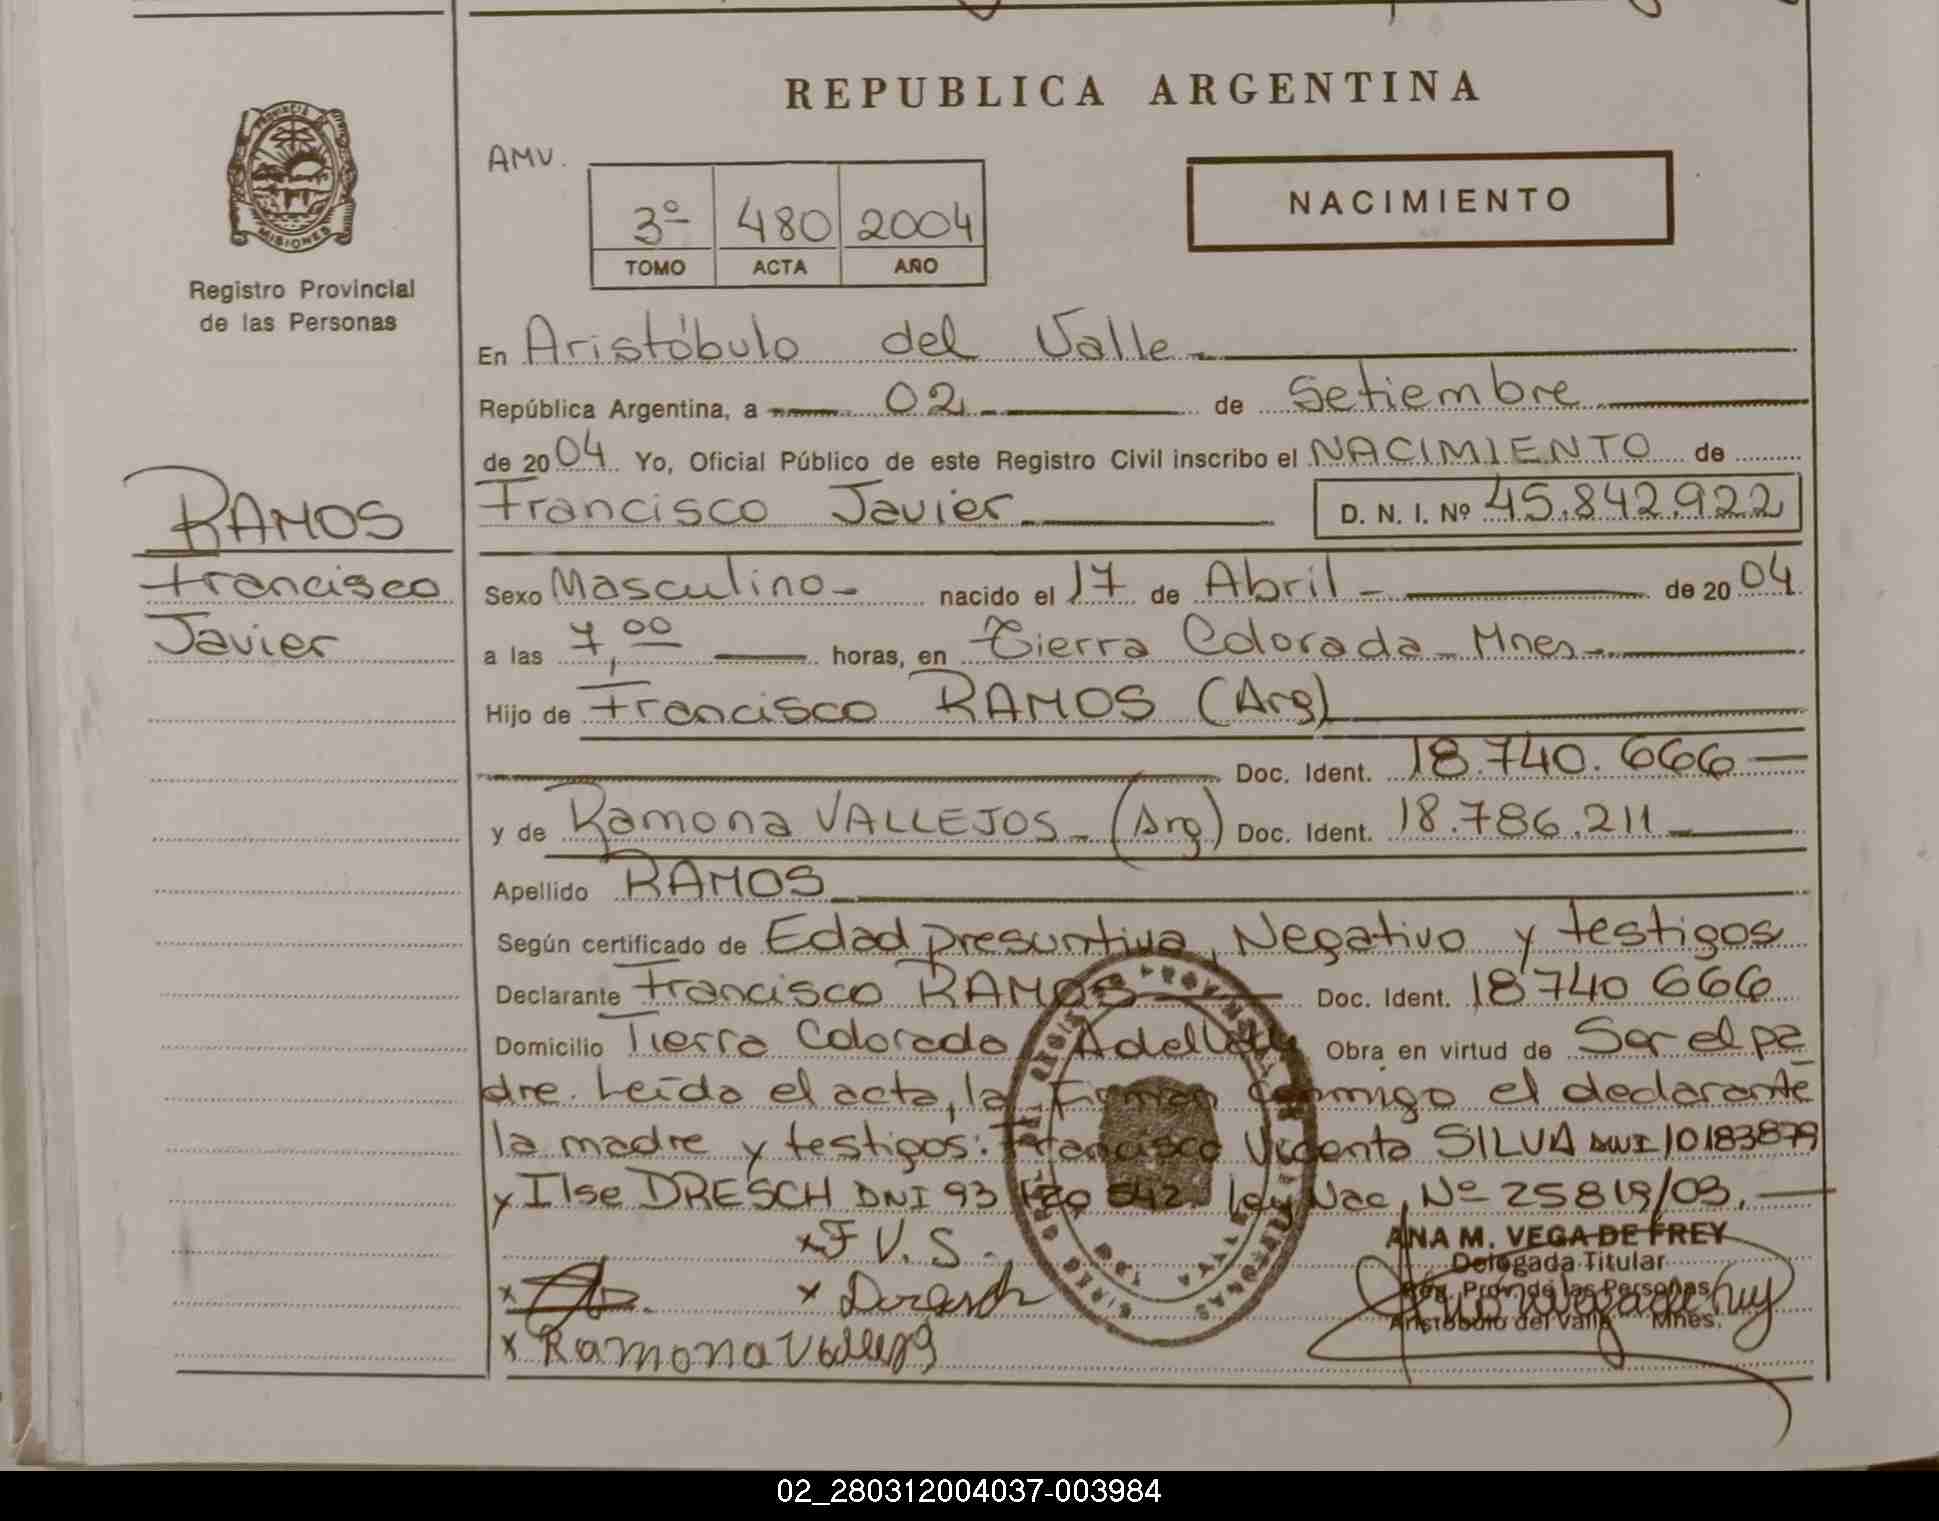 REPUBLICA ARGENTINA
PROVINCIA DE
MISIONES
Registro Provincial
de las Personas
AMV.
3º 480 2004
TOMO ACTA AÑO
NACIMIENTO
En Aristóbulo del Valle
República Argentina, a 02 de Setiembre
de 2004 Yo, Oficial Público de este Registro Civil inscribo el NACIMIENTO de
Francisco Javier D. N. I. Nº 45.842.922
RAMOS
Francisco
Javier
Sexo Masculino - nacido el 17 de Abril - de 2004
a las 7,00 horas, en Tierra Colorada - Mnes -
Hijo de Francisco RAMOS (Arg)
Doc. Ident. 18.740.666
y de Ramona VALLEJOS - (Arg) Doc. Ident. 18.786.211
Apellido RAMOS
Según certificado de Edad presuntiva, Negativo y testigos
Declarante Francisco RAMOS Doc. Ident. 18740 666
Domicilio Tierra Colorada Obra en virtud de Ser el pa
dre. Leída el acta, la Firman Conmigo el declarante
la madre y testigos: Francisco Vicenta SILVA DNI 10183879
y Ilse DRESCH DNI 93 Ley Nac. Nº 25819/03.
x F V. S.
x Dresch
x Ramona Vallejos
ANA M. VEGA DE FREY
Delegada Titular
Reg. Prov. de las Personas
Aristóbulo del Valle Mnes.
02_280312004037-003984